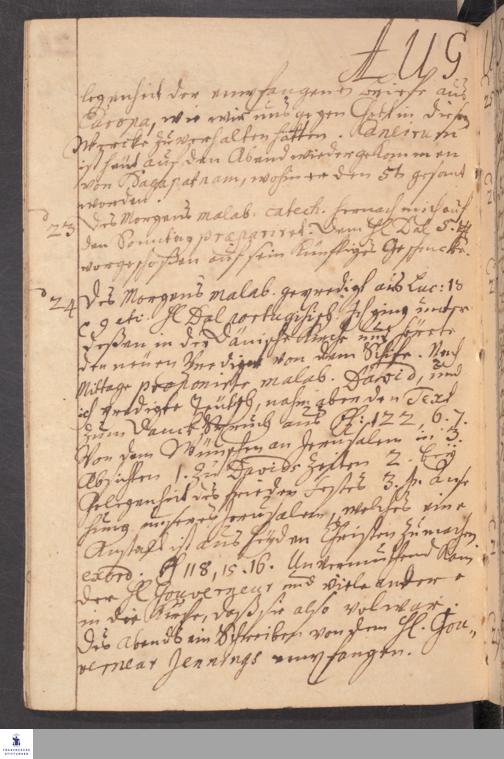 AUG
legenheit der empfangenen Briefe aus
Europa, wie wir uns gegen Gott in diesem
Wercke zu verhalten hätten.
ist heut auf den Abend wiedergekommen
von Nagapatnam, wohin er den 5t gesant
worden.
d 23 Des Morgens malab. catech. hernach mich auf
den Sonntag praepariret. Dem H. Dal 5
vorgeschoßen auf sein künftiges
d 24 Des Morgens malab. geprediget aus Luc: 18
H. Dal portugisisch. Ich ging unter
deßen in die Dänische Kirche und hörete
den neuen Prediger von dem Schiffe. Nach
Mittage proponirte malab. David, und
ich predigte Teutsch, nahm aber den Text
zum Danck Spruch aus Ps: 122, 6. 7.
Von dem Wünschen an Jerusalem in 3.
Absichten 1. Zu Davids Zeiten 2. bey
Gelegenheit des Frieden Festes 3. in Anse
hung unseres Jerusalem, welches eine
Anstalt ist aus Heyden Christen zu machen
exord. Ps 118, 15. 16. Unvermuthend kam
der H. Gouverneur und viele andere
in die Kirche, daß sie also vol war.
Des Abends ein Schreiben von dem H. Gou-
verneur Jennings empfangen.
FRANCKESCHE
STIFTUNGEN